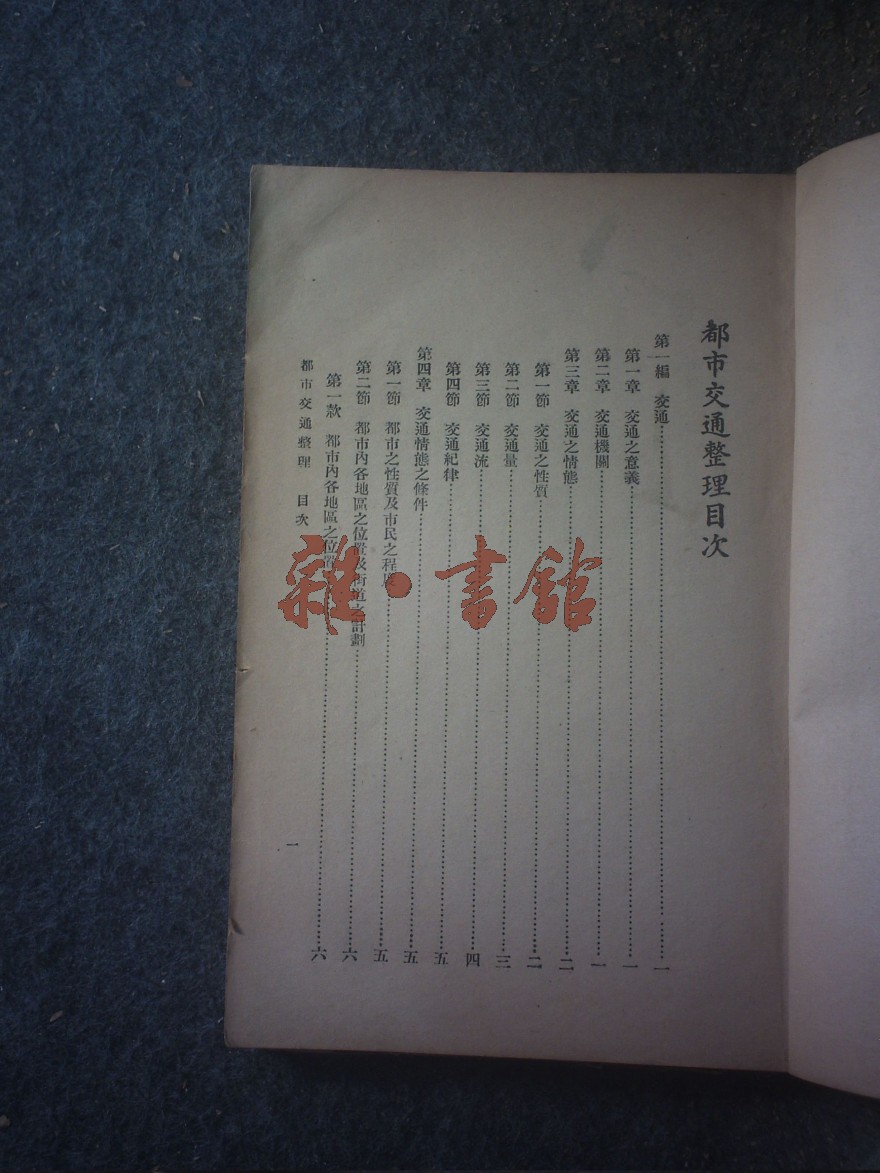 都市交通整理目次
第一編　交通……一
第一章　交通之意義……一
第二章　交通機關……一
第三章　交通之情態……二
第一節　交通之性質……二
第二節　交通量……三
第三節　交通流……四
第四節　交通紀律……五
第四章　交通情態之條件……五
第一節　都市之性質及市民之程度……五
第二節　都市內各地區之位置及街道之計劃……六
第一款　都市內各地區之位置……六
都市交通整理　目次
一
雜·書館